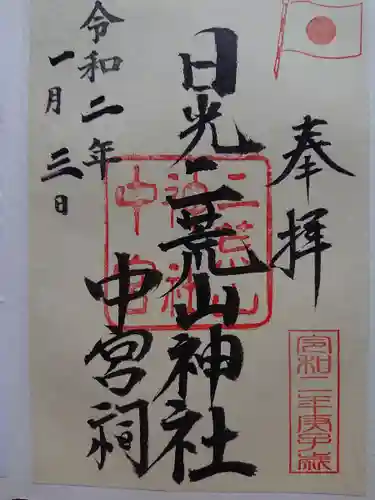 奉拝
日光二荒山神社
中宮祠
令和二年
一月三日
二荒山
神社
中宮
令和二年庚子歳